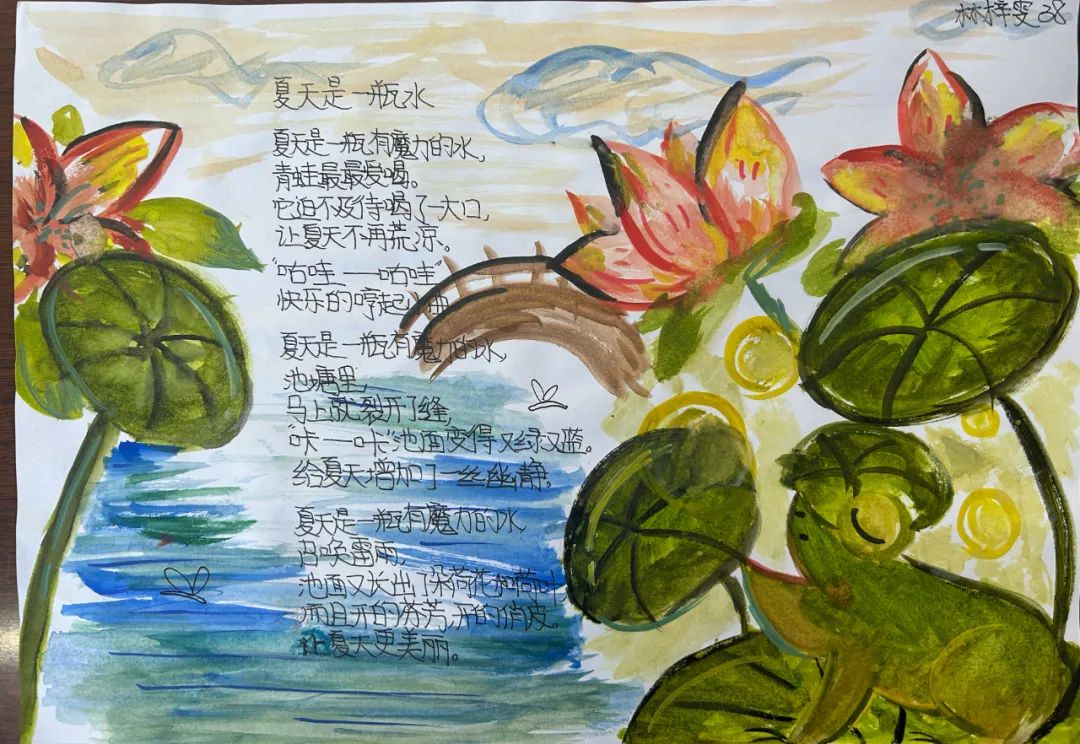 林梓雯 38
夏天是一瓶水
夏天是一瓶有魔力的水,
青蛙最最爱喝。
它迫不及待喝了一大口,
让夏天不再荒凉。
"咕哇——咕哇"
快乐的哼起小曲
夏天是一瓶有魔力的水,
池塘里,
马上就裂开了缝,
"咔——咔"池面变得又绿又蓝。
给夏天增加了一丝幽静,
夏天是一瓶有魔力的水
召唤雷雨,
池面又长出了朵荷花和荷叶
而且开的芬芳,开的俏皮。
让夏天更美丽。